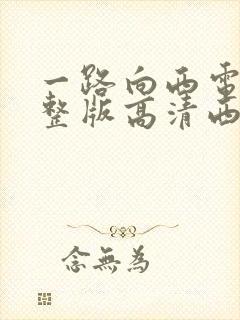 一路向西电
整版高清西
念無為